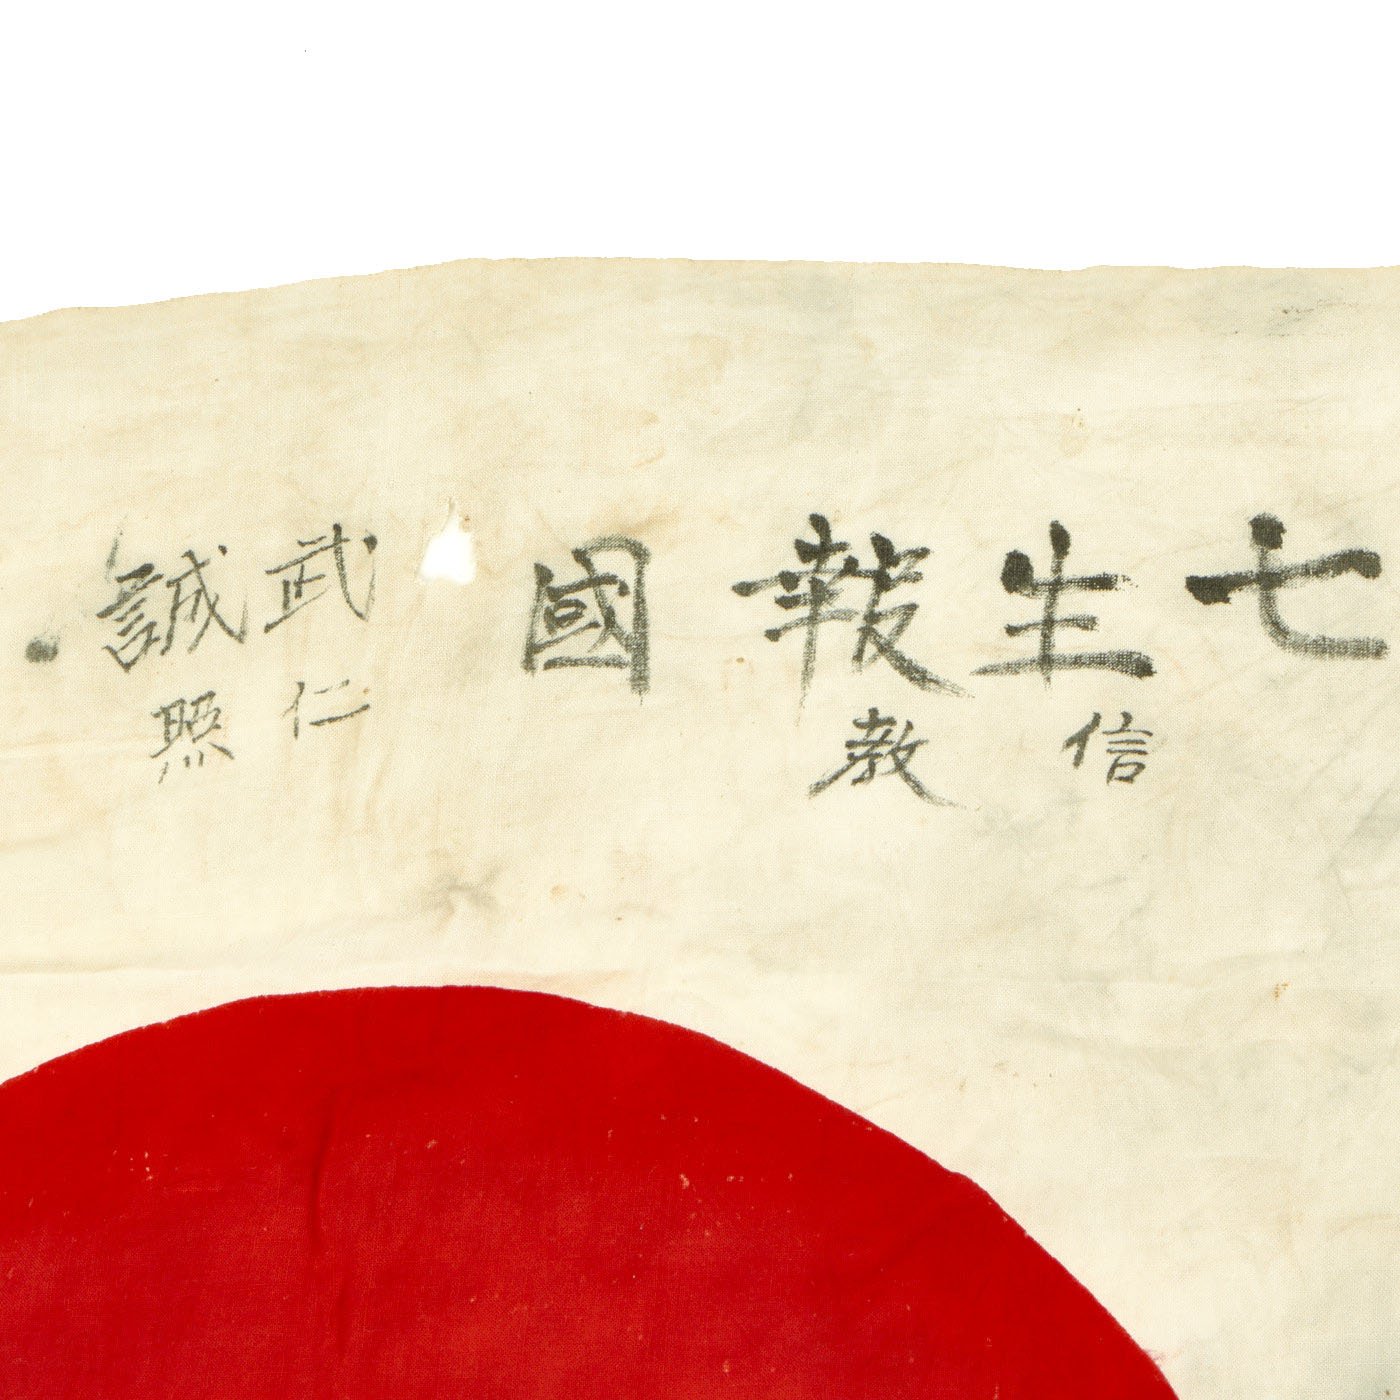 七生報國
信教
武誠
仁照